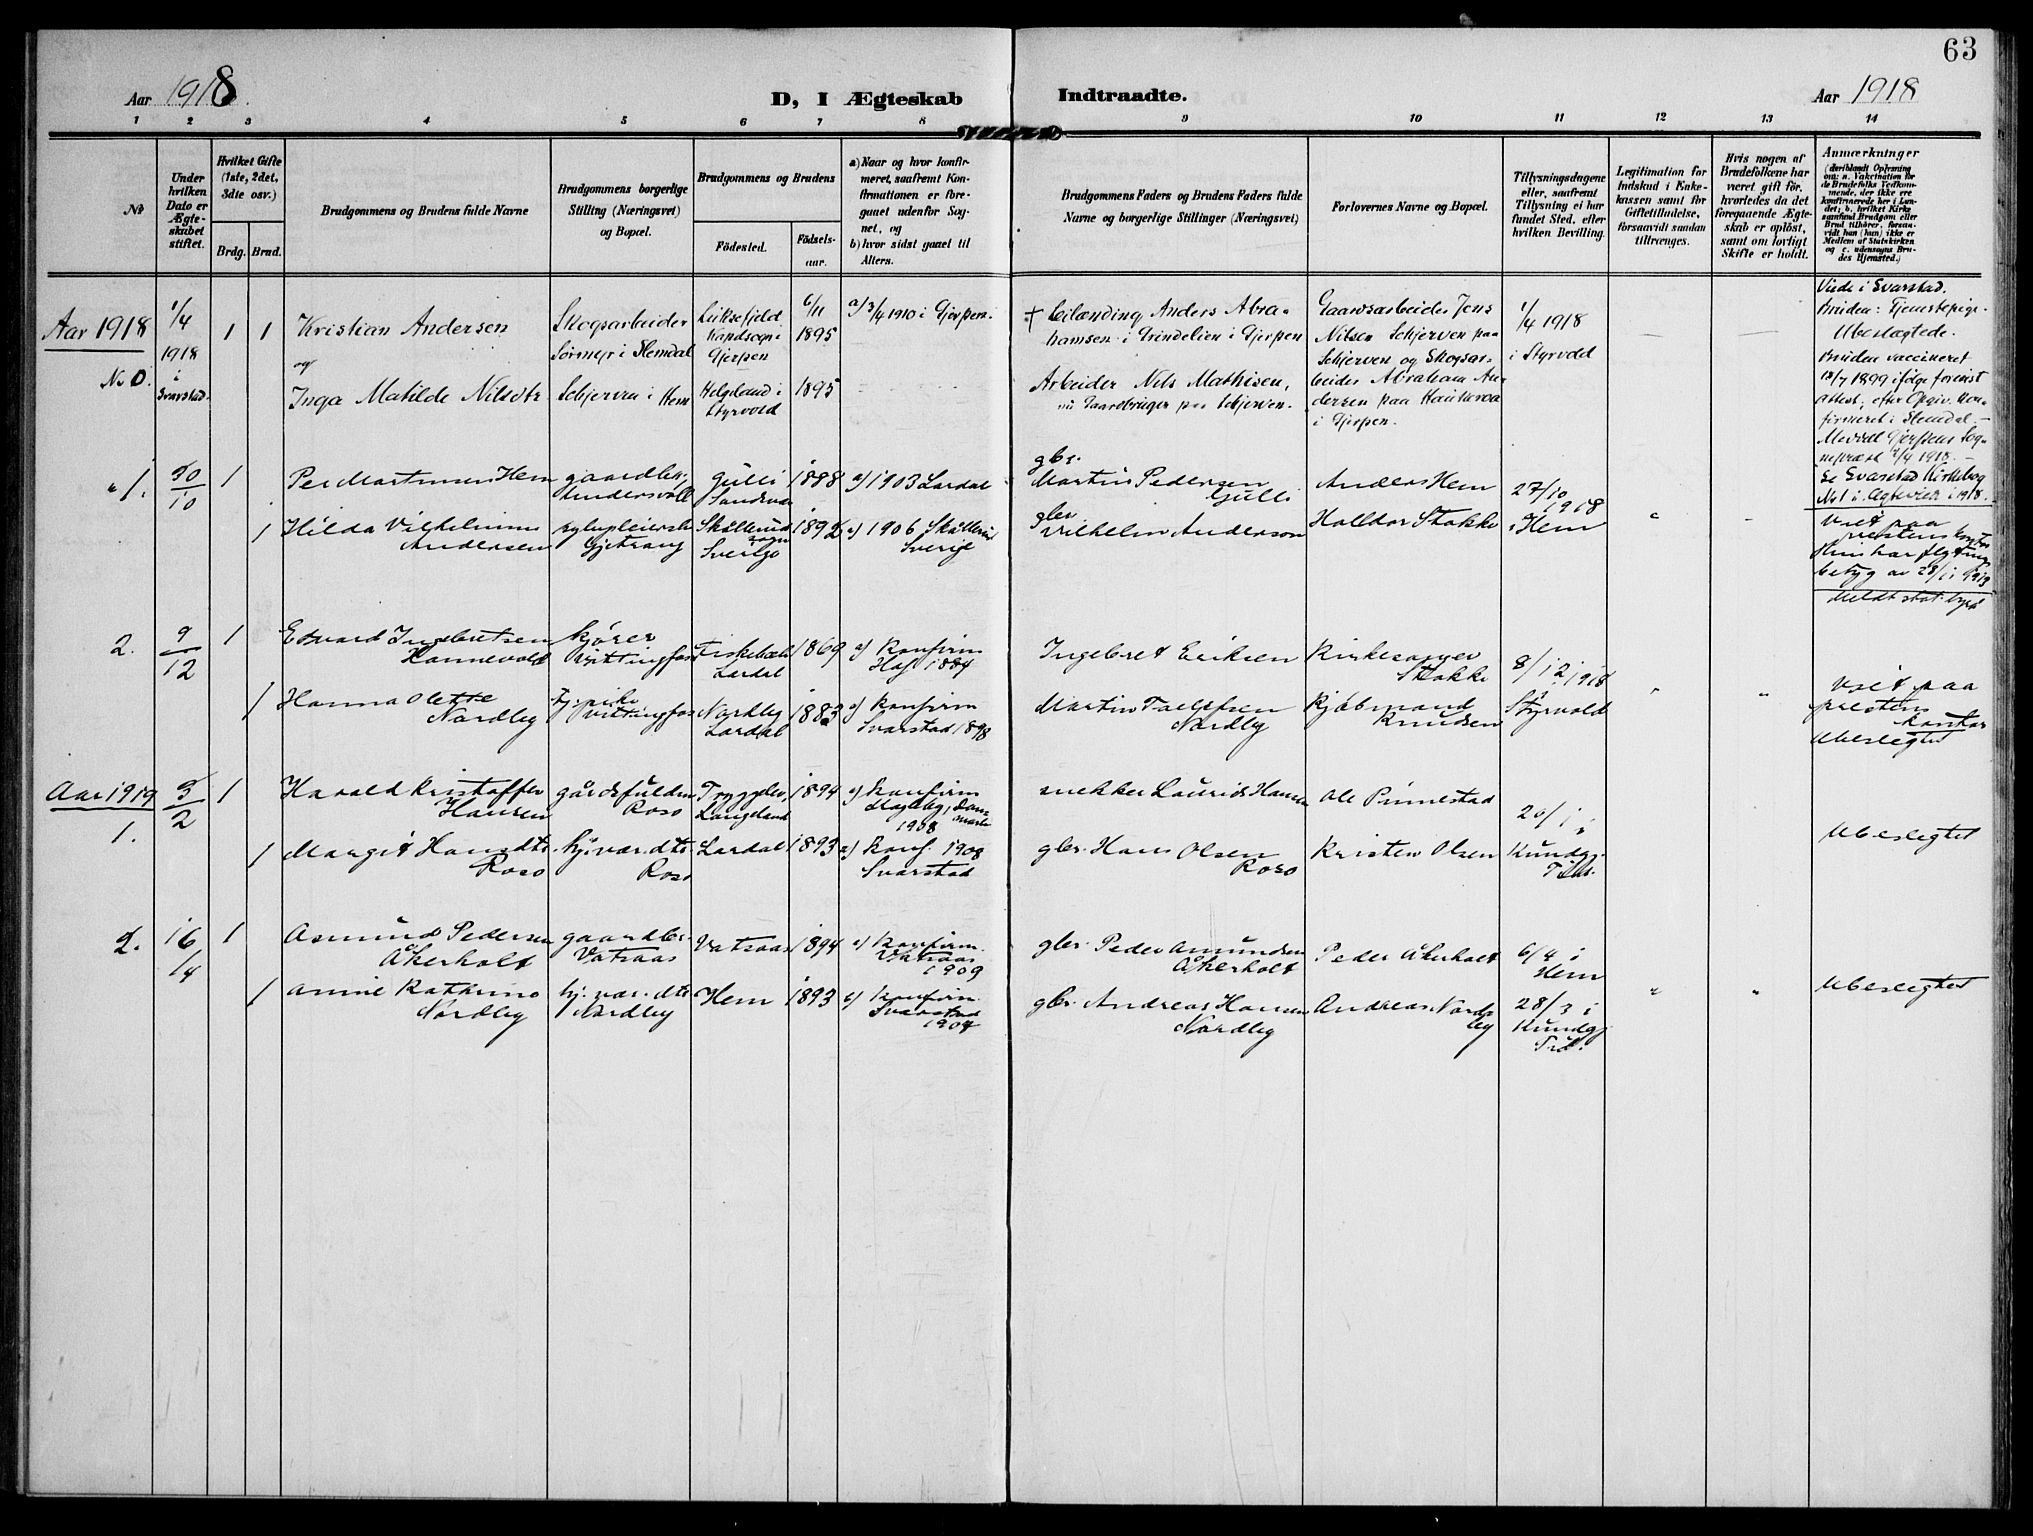 63
Aar 1918.
D, I Ægteskab
Indtraadte.
Aar 1918
1 2 3 4 5 6 7 8 9 10 11 12 13 14
№
Under
hvilken
Dato er
Ægte-
skabet
stiftet.
Hvilket Gifte
(1ste, 2det,
3die osv.)
Brdg. Brud.
Brudgommens og Brudens fulde Navne
Brudgommens borgerlige
Stilling (Næringsvei)
og Bopæl.
Brudgommens og Brudens
Fødested.
Fødsels-
aar.
a) Naar og hvor konfir-
meret, saafremt Kon-
firmationen er fore-
gaaet udenfor Sog-
net, og
b) hvor sidst gaaet til
Alters.
Brudgommens Faders og Brudens Faders fulde
Navne og borgerlige Stillinger (Næringsvei)
Forlovernes Navne og Bopæl.
Tillysningsdagene
eller, saafremt
Tillysning ei har
fundet Sted, efter
hvilken Bevilling.
Legitimation for
Indskud i Enke-
kassen samt for
Giftetilladelse,
forsaavidt saadan
tiltrænges.
Hvis nogen af
Brudefolkene har
været gift før,
hvorledes da det
foregaaende Ægte-
skab er opløst,
samt om lovligt
Skifte er holdt.
Anmærkninger
(deriblandt Oplysning
om: a. Vaccination for
de Brudefolks Vedkom-
mende, der ikke ere
konfirmerede her i Lan-
det; b. hvilket Kirke-
samfund Brudgom eller
Brud tilhører, forsaa-
vidt han (hun) ikke er
Medlem af Statskirken
og c. udensogns Bru-
des Hjemsted.)
Aar 1918
No 0.
1/4
1918
i
Svarstad.
1 1
Kristian Andersen
og
Inga Matilde Nilsdtr.
Skogsarbeider
Sørmyr i Slemdal
Schjerven i Hem
Luksefjeld
Landsogn i
Gjerpen
Helgeland i
Styrvold
6/11
1895
1895
a) 3/4 1910 i Gjerpen.
† Leilænding Anders Abra-
hamsen i Grindelien i Gjerpen
Arbeider Nils Mathisen,
nu Gaardbruger paa Schjerven.
Gaardsarbeider Jens
Nilsen Schjerven paa
Schjerven og Skogsar-
beider Abraham An-
dersen paa
i Gjerpen.
1/4 1918
i Styrvold
Viede i Svarstad.
Bruden: Tjenestepige.
Ubeslægtede.
Bruden vaccineret
1899 ifølge forevist
Attest, efter Opgiv. kon-
firmeret i Slemdal.
Gjerpens Sog-
neprest 4/4 1918.
Se Svarstad Kirkebog
No 1 i Ægteviede i 1918.
" 1.
30/10
1
1
Per Martinius Hem
Hilda Vilhelmina
Andersen
gaardbr.
sykepleierske
Gulli
Sandsvær
Skållerud
sogn
Sverige
1888
1892
a) 1903 Lardal
a) 1906 Skållerud
Sverige
gbr.
Martin Pedersen
Gulli
gbr
Vilhelm Anderson
Anders Hem
Halldor Stokke
27/10
1918
i Hem
" -
Viet paa
prestens kontor
Hun har flytnings
betyg av
Meldt stat. byrå
2.
9/12
1
1
Edvard Ingebretsen
Hannevold
Hanna Olette
Nordby
kjører
Vittingfoss
Vittingfoss
Fiskebæk
Lardal
Nordby
Lardal
1869
1883
a) Konfirm
Hof 1884
a) Konfirm
Svarstad 1898
Ingebret Eriksen
Martin
Nordby
Kirkesanger
Stokke
Kjøbmand
Knudsen
8/12 1918
i Styrvold
" "
Viet paa
prestens
kontor
Ubeslegtet
Aar 1919
1.
9/2
1
1
Harald Kristoffer
Hansen
Margit Hansdtr
Roso
gårdsfuldm
Roso
hj.værdtr
Roso
Tryggelev,
Langeland
Lardal
1894
1893
a) Konfirm
Danmark
1908
a) Konf. 1908
Svarstad
snekker Laurids Hansen
gbr. Hans Olsen
Roso
Ole Pinnestad
Kristen Olsen
26/1 i
Kundgj.
Tid.
Ubeslegtet
2.
16/4
1
1
Asmund Pedersen
Åkerholt
Annie Kathrine
Nordby
gaardbr.
Vatsaas
hj. vær. dtr
Nordby
Vatsaas
Hem
1894
1893
a) Konfirm.
Vatsaas
1909
a) Konfirm.
Svarstad
1907
gbr. Peder Amundsen
Åkerholt
gbr. Andreas Hansen
Nordby
Peder Åkerholt
Andreas Nord-
by
6/4 i
Hem
28/3 i
Kundgj
Tid.
" "
Ubeslegtet